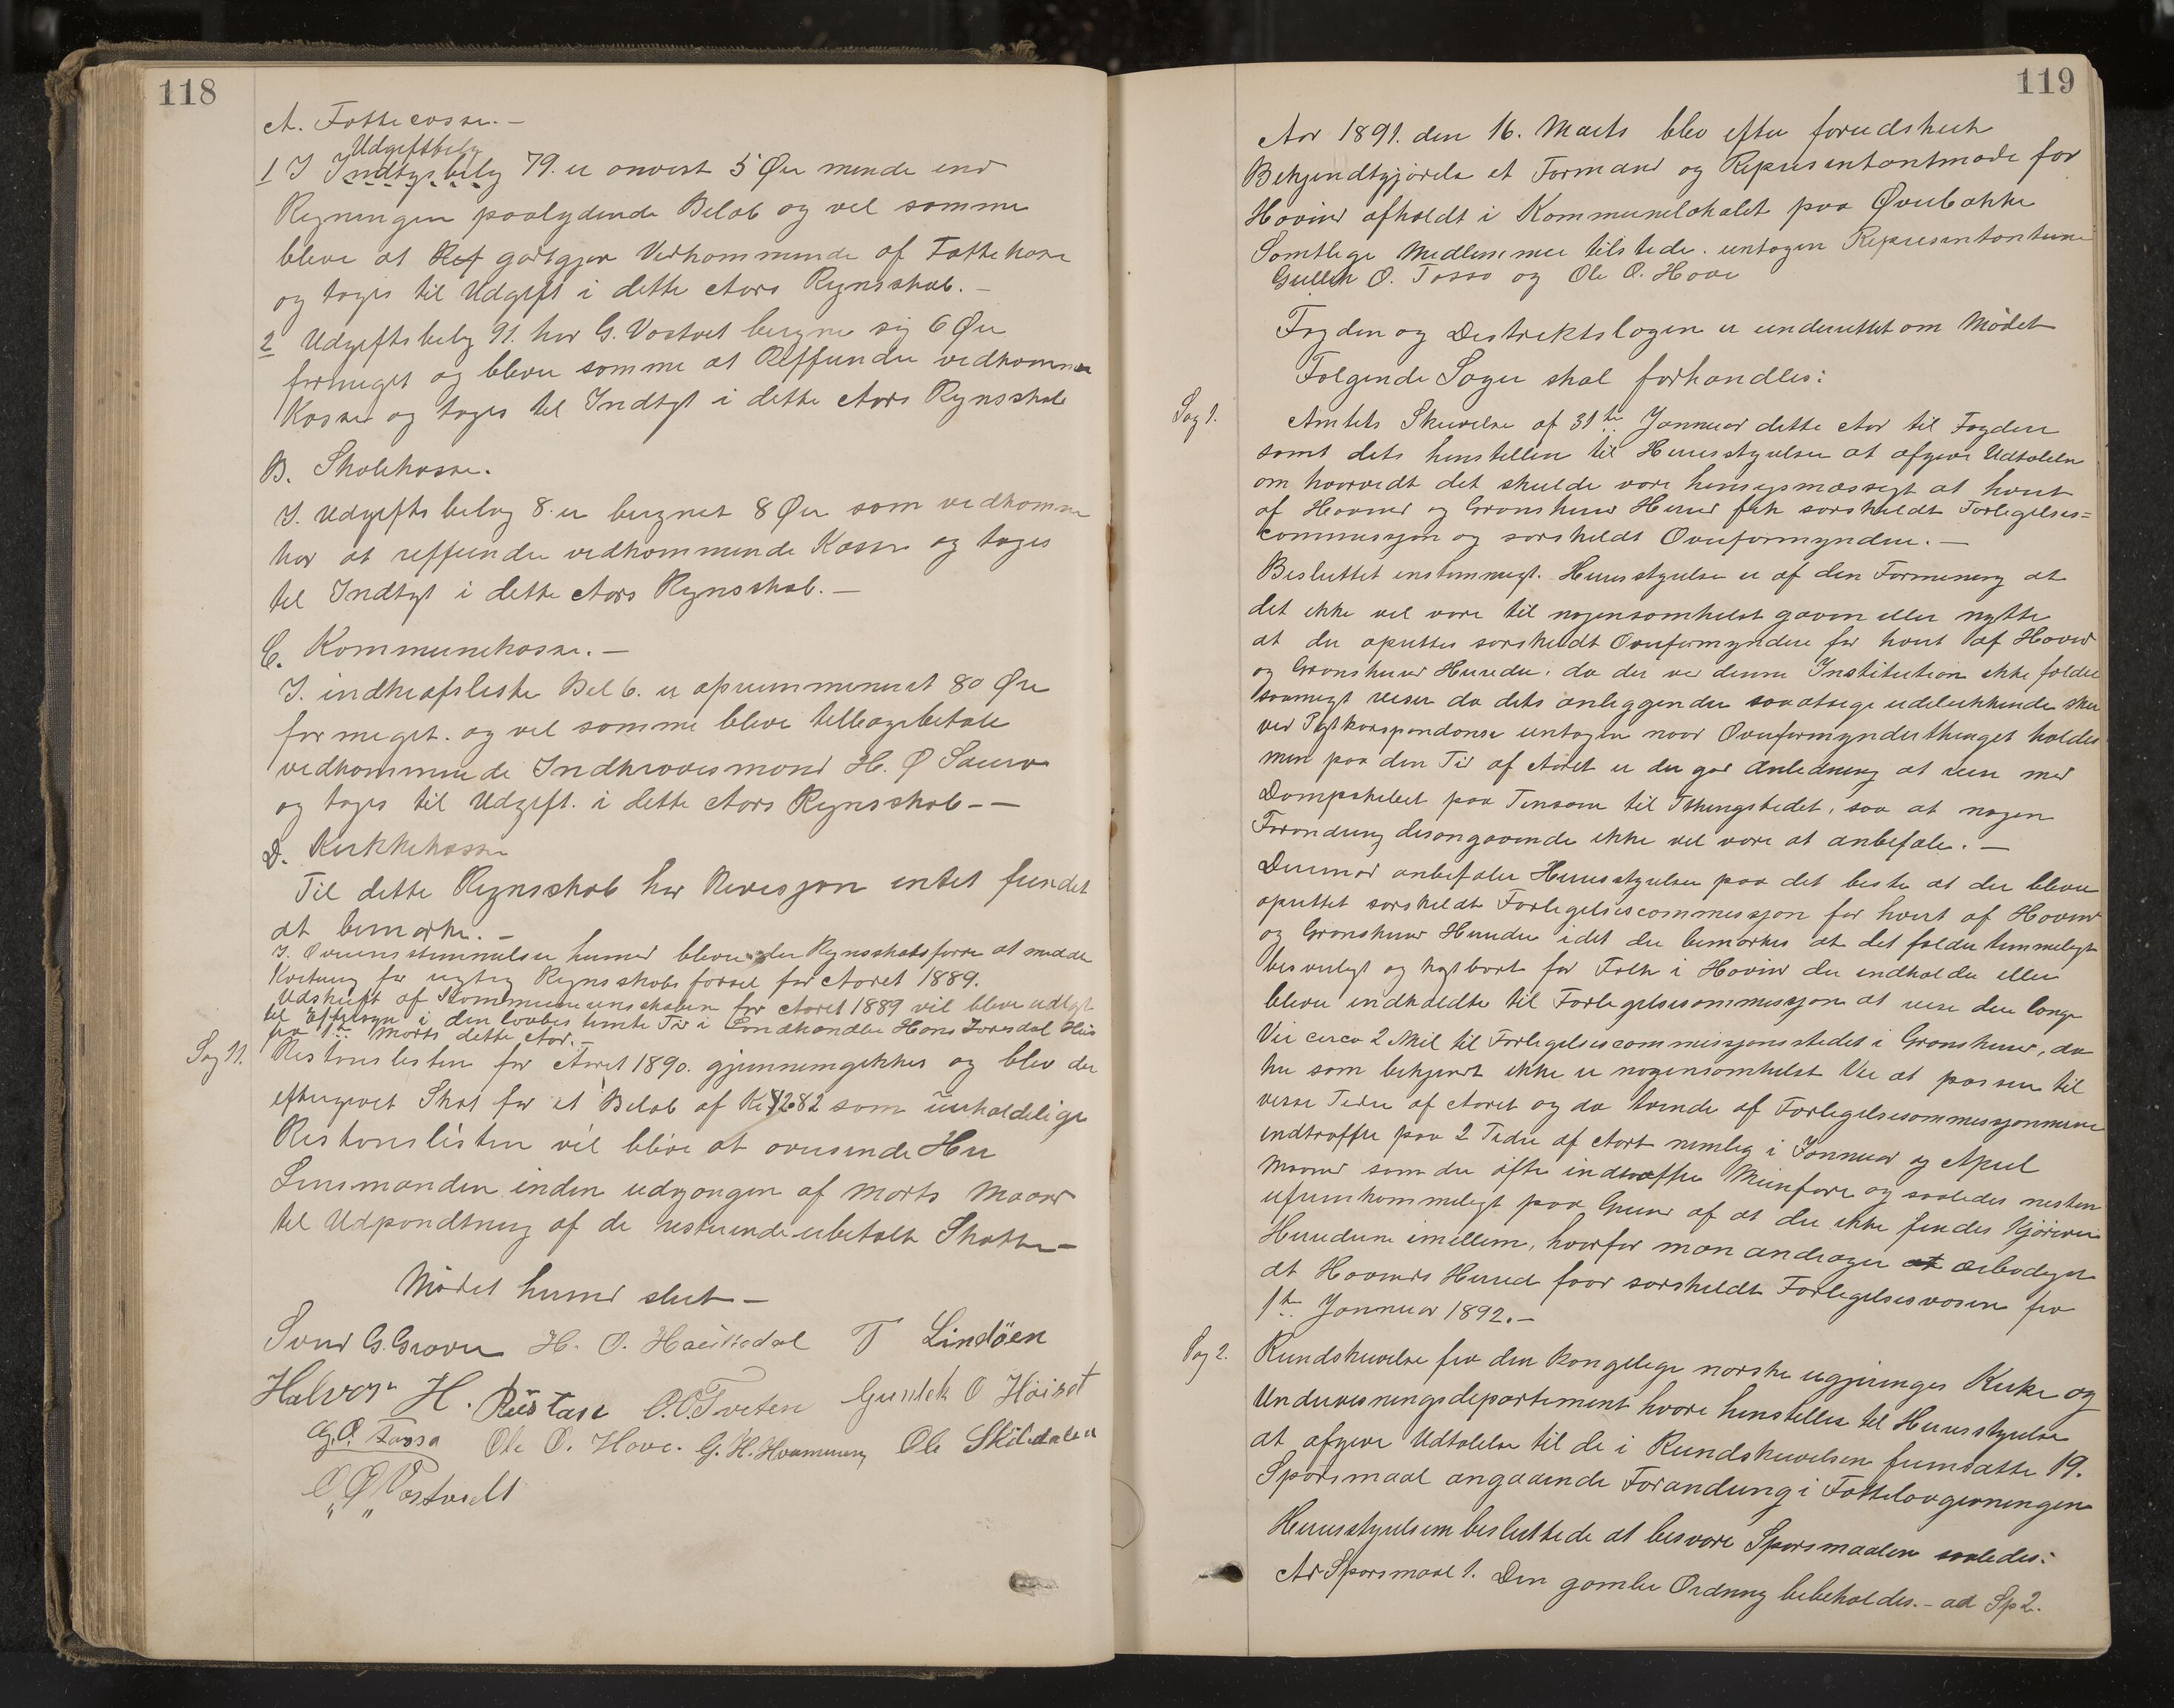 118
A. Fattecasse. –
Udgiftsbelg
1 I Indtgsbelg 79. er anvist 5 Øre mende end
Regningen paalydende Beløb og vel samme
blive at godtgjøre Vedkommende af Fattekasse
og tages til Udgift i dette Aars Regnsskab. –
2 Udgiftsbelg 91. har G. Vastvet beregne sig 6 Øre
formeget og bliver samme at Reffundere vedkomme
Kasse og tages til Indtgt i dette Aars Regnsskab
B. Skolekasse.
I. Udgiftsbelag 8. er beregnet 8 Øre som vedkomme
har at reffundere vedkommende Kasse og tages
til Indtgt i dette Aars Regnsskab. –
C. Kommunekasse. –
I. indkrafsliste Bel 6. er opsummeneret 80 Øre
for meget. og vel samme blive tilbagebetale
vedkommende Indkrævesmand H. O
og tages til Udgift. i dette Aars Regnsskab – –
D. Kirkkekasse
Til dette Regnsskab har Revesjon intet fundet
at bemærke. –
I. Overensstemmelse hermed blever der Regnsskabsforer at medde
Kvitering for regtig Regnsskabsforsel for Aaret 1889.
Udskrift af Kommuneregnskaben for Aaret 1889 vil blive udlagt
til Eftersyn i den lovbestemte Tid i Landhandler Hans Hus
fra 1ste Marts dette Aar. –
Sag 11. Restanslisten for Aaret 1890. gjennemgikkes og blev der
eftergivet Skat for et Beløb af Kr 82 som uerholdelige
Restanslisten vil blive at oversende Hrr
Lensmanden inden udgangen af Marts Maaned
til Udpandtning af de resterende ubetalte Skatter –
Mødet hermed slut –
Svend G. Graver H. O. Haukedal T Lindöen
Halvor H. Rustase O. O. Tveten Gunlek O Höiset
G. O. Fossa Ole O. Hove. G. H. Ole Skildalen
O. Ø Vastveelt
119
Aar 1891. den 16. Marts blev efter forudskeet
Bekjendtgjørelse et Formand og Representantmøde for
Hovind afholdt i Kommunelokalet paa Øverbakke
Samtlige Medlemmer tilstede. untagen Representanterne
Gullek O. Fossa og Ole O. Hove
Fogden og Destriktslægen er underrettet om Mødet
Følgende Sager skal forhandles:
Sag 1. Amtets Skrivelse af 31te Januar dette Aar til Fogden
samt dets henstillen til Herresstyrelsen at afgive Udtalelse
om hvorvidt det skulde være hensigsmæssigt at hvert
af Hovind og Gransherred Herred fik særskildt Forlegelses=
commissjon og særskildt Overformyndere. –
Besluttet enstemmigt. Herresstyrelse er af den Formening at
det ikke vel være til nogensomhelst gavn eller nytte
at der oprettes særskildt Overformyndere for hvert af Hovind
og Gransherred Herreder, da der ved denne Institution ikke falder
saameget reiser da dets anleggender saaatsige udelukkende sker
ved Postkorspondanse untagen naar Overformynderthinget holdes
men paa den Tid af Aaret er der god Anledning at reise med
Dampskibet paa Tinsøen til Thingstedet, saa at nogen
Forandring desangaaende ikke vel være at anbefale. –
Derimod anbefaler Herresstyrelsen paa det beste at der bliver
oprettet særskildt Forlegelsescommessjon for hvert af Hovind
og Gransherred Herreder idet der bemærkes at det falder temmeligt
besverligt og kostbart for Folk i Hovind der indkalder eller
bliver indkaldte til Forlegelsesommissjon at reise den lange
Vei circa 2 Mil til Forlegelsescommissjonsstedet i Gransherred, da
her som bekjendt ikke er nogensomhelst Vei at passere til
visse Tider af Aaret og da tvende af Forlegelsesommissjonnerne
indtræffer paa 2 Tider af Aart nemlig i Januar og April
Maaned som der ofte indtræffer Meinføre og saaledes nesten
ufremkommeligt paa Grund af at der ikke findes Kjørevei
Herrederne imellem, hvorfor man andrager ærbødigst
at Hovinds Herred faar særskildt Forlegelsesvæsen fra
1te Januar 1892. –
Sag 2. Rundskrivelse fra den kongelige norske regjeringes Kirke og
Underveisningsdepartement hvori henstilles til Herresstyrelse
at afgive Udtalelse til de i Rundskrivelsen fremsatte 19.
Spørsmaal angaaende Forandring i Fattelovgivningen
Herresstyrelsen besluttede at besvare Spørsmaalen saaledes:
Ad Spørsmaal 1. Den gamle Ordning bebeholdes. – ad Sp 2.